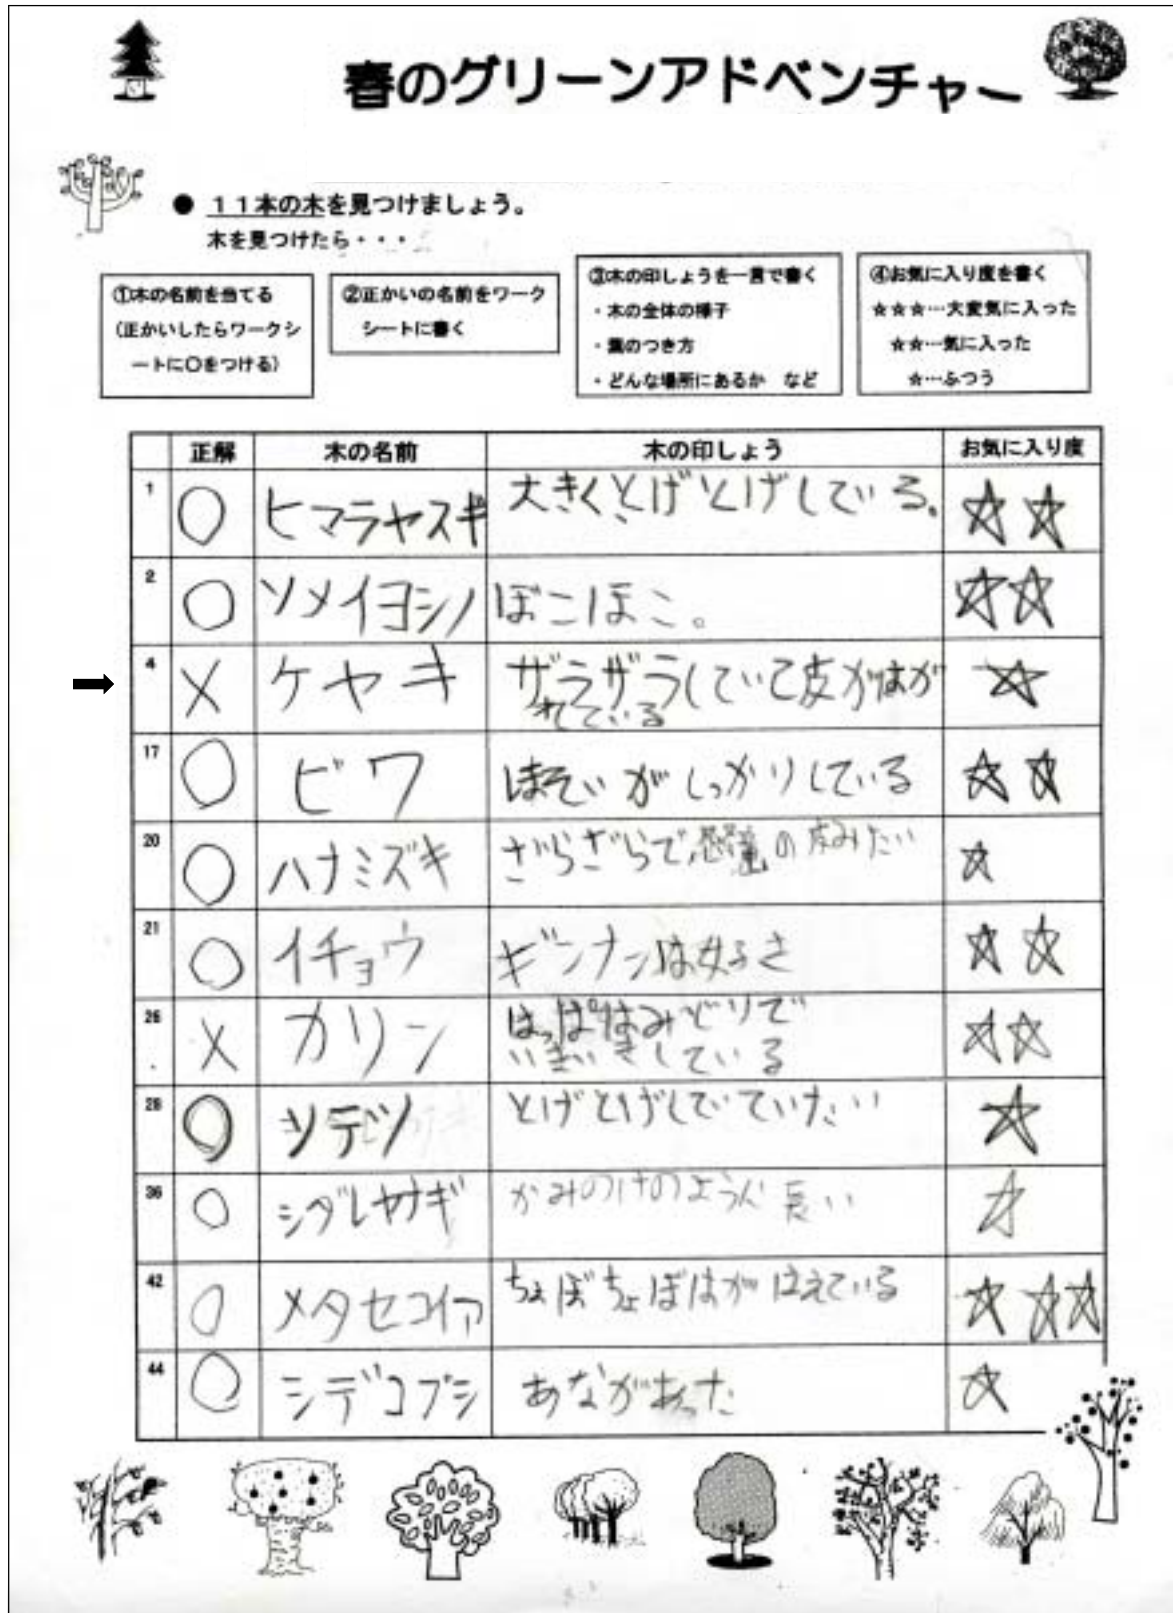 春のグリーンアドベンチャー
● 11本の木を見つけましょう。
木を見つけたら・・・
①木の名前を当てる
(正かいしたらワークシ
ートに○をつける)
②正かいの名前をワーク
シートに書く
③木の印しょうを一言で書く
・木の全体の様子
・葉のつき方
・どんな場所にあるか など
④お気に入り度を書く
☆☆☆…大変気に入った
☆☆…気に入った
☆…ふつう
正解 木の名前 木の印しょう お気に入り度
1 ○ ヒマラヤスギ 大きくとげとげしている。 ☆☆
2 ○ ソメイヨシノ ぼこぼこ。 ☆☆
4 × ケヤキ ザラザラしていて皮がはが
れている ☆
17 ○ ビワ ほそいがしっかりしている ☆☆
20 ○ ハナミズキ ざらざらで恐竜の皮みたい ☆
21 ○ イチョウ ギンナンは好き ☆☆
26 × カリン はっぱはみどりで
いきいきしている ☆☆
28 ○ ソテツ とげとげしていていたい ☆
36 ○ シダレヤナギ かみのけのように長い ☆
42 ○ メタセコイア ちょぼちょぼはがはえている ☆☆☆
44 ○ シデコブシ あながあった ☆